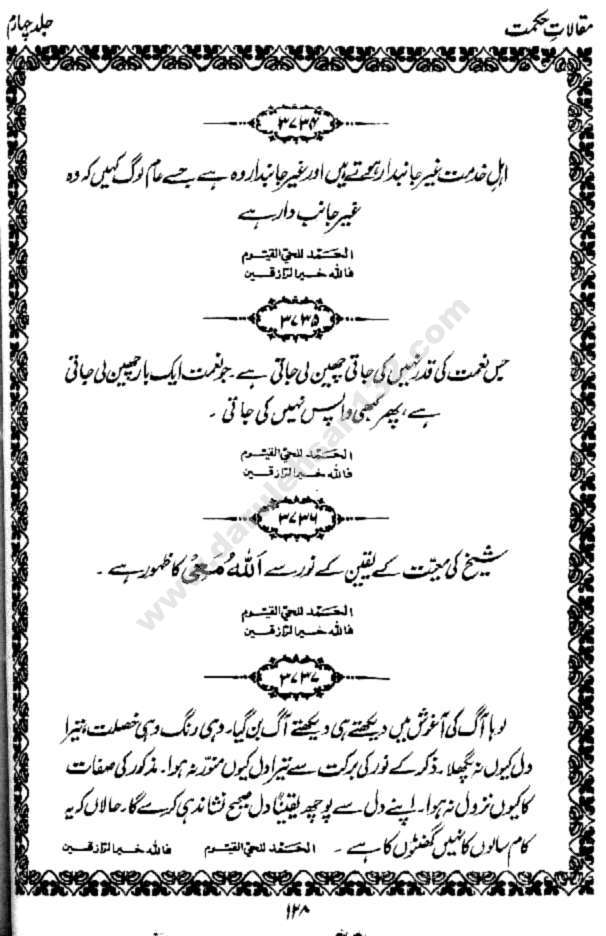 مقالاتِ حکمت
جلد چہارم
۳۷۳۴
اہلِ خدمت غیر جانبدار ہوتے ہیں اور غیر جانبدار وہ ہے جسے عام لوگ کہیں کہ وہ
غیر جانب دار ہے
الحَمد للحیّ القیّوم
فاللہ خیر الرّازقین
۳۷۳۵
جس نعمت کی قدر نہیں کی جاتی چھین لی جاتی ہے۔ جو نعمت ایک بار چھین لی جاتی
ہے، پھر کبھی واپس نہیں کی جاتی ۔
الحَمد للحیّ القیّوم
فاللہ خیر الرّازقین
۳۷۳۶
شیخ کی معیّت کے یقین کے نور سے اَللہُ مَعِیْ کا ظہور ہے ۔
الحَمد للحیّ القیّوم
فاللہ خیر الرّازقین
۳۷۳۷
لوہا آگ کی آغوش میں دیکھتے ہی دیکھتے آگ بن گیا۔ وہی رنگ وہی خصلت، تیرا
دل کیوں نہ پگھلا۔ ذکر کے نور کی برکت سے تیرا دل کیوں منوّر نہ ہوا۔ مذکور کی صفات
کا کیوں نزول نہ ہوا۔ اپنے دل سے پوچھ یقیناً دل صحیح نشاندہی کرے گا۔ حالاں کہ یہ
کام سالوں کا نہیں گھنٹوں کا ہے ۔ الحَمد للحیّ القیّوم فاللہ خیر الرّازقین
۱۲۸
www.darulehsan137.com